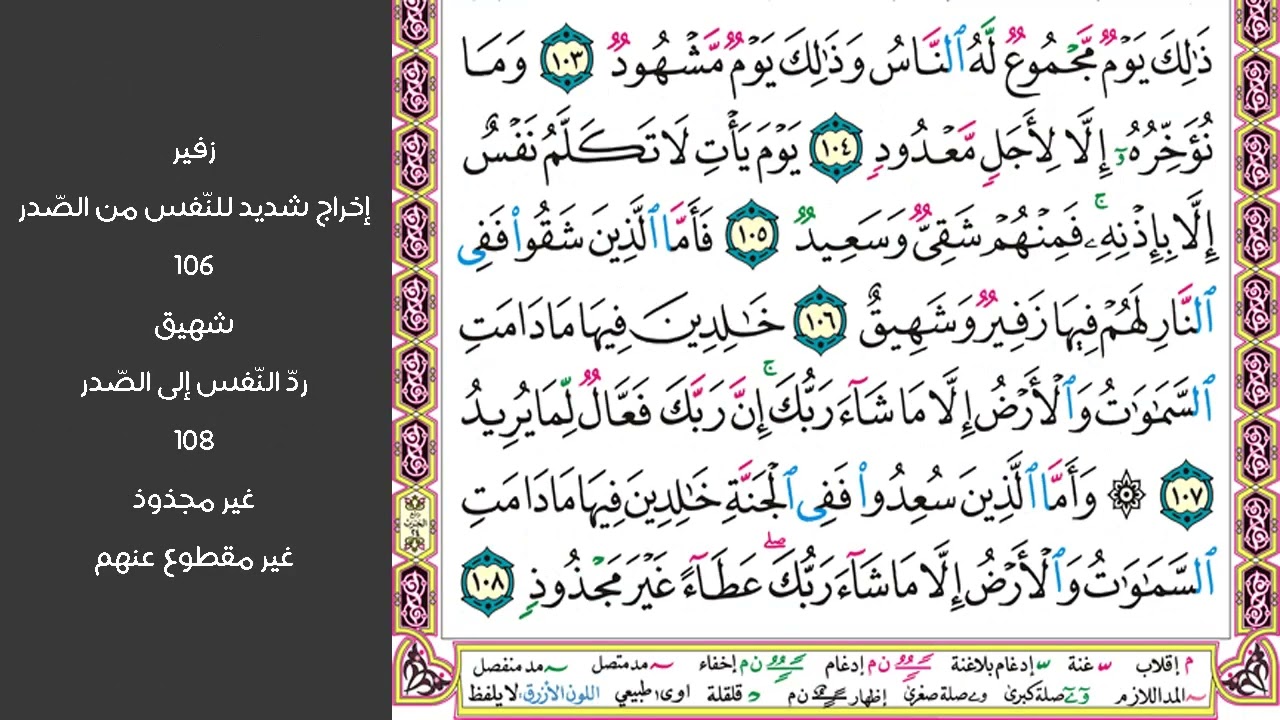 ذَٰلِكَ يَوْمٌ مَّجْمُوعٌ لَّهُ ٱلنَّاسُ وَذَٰلِكَ يَوْمٌ مَّشْهُودٌ ١٠٣ وَمَا
نُؤَخِّرُهُۥٓ إِلَّا لِأَجَلٍ مَّعْدُودٍ ١٠٤ يَوْمَ يَأْتِ لَا تَكَلَّمُ نَفْسٌ
إِلَّا بِإِذْنِهِۦ ۚ فَمِنْهُمْ شَقِىٌّ وَسَعِيدٌ ١٠٥ فَأَمَّا ٱلَّذِينَ شَقُوا۟ فَفِى
ٱلنَّارِ لَهُمْ فِيهَا زَفِيرٌ وَشَهِيقٌ ١٠٦ خَـٰلِدِينَ فِيهَا مَا دَامَتِ
ٱلسَّمَـٰوَٰتُ وَٱلْأَرْضُ إِلَّا مَا شَآءَ رَبُّكَ ۚ إِنَّ رَبَّكَ فَعَّالٌ لِّمَا يُرِيدُ
١٠٧ ۞ وَأَمَّا ٱلَّذِينَ سُعِدُوا۟ فَفِى ٱلْجَنَّةِ خَـٰلِدِينَ فِيهَا مَا دَامَتِ
ٱلسَّمَـٰوَٰتُ وَٱلْأَرْضُ إِلَّا مَا شَآءَ رَبُّكَ ۖ عَطَآءً غَيْرَ مَجْذُوذٍ ١٠٨
م إقلاب غنة إدغام بلاغنة ن م إدغام ن م إخفاء مد متصل مد منفصل
المد اللازم صلة كبرى صلة صغرى إظهار ن م قلقلة اوى؛ طبيعي اللون الأزرق؛ لا يلفظ
زفير
إخراج شديد للنّفس من الصّدر
106
شهيق
ردّ النّفس إلى الصّدر
108
غير مجذوذ
غير مقطوع عنهم